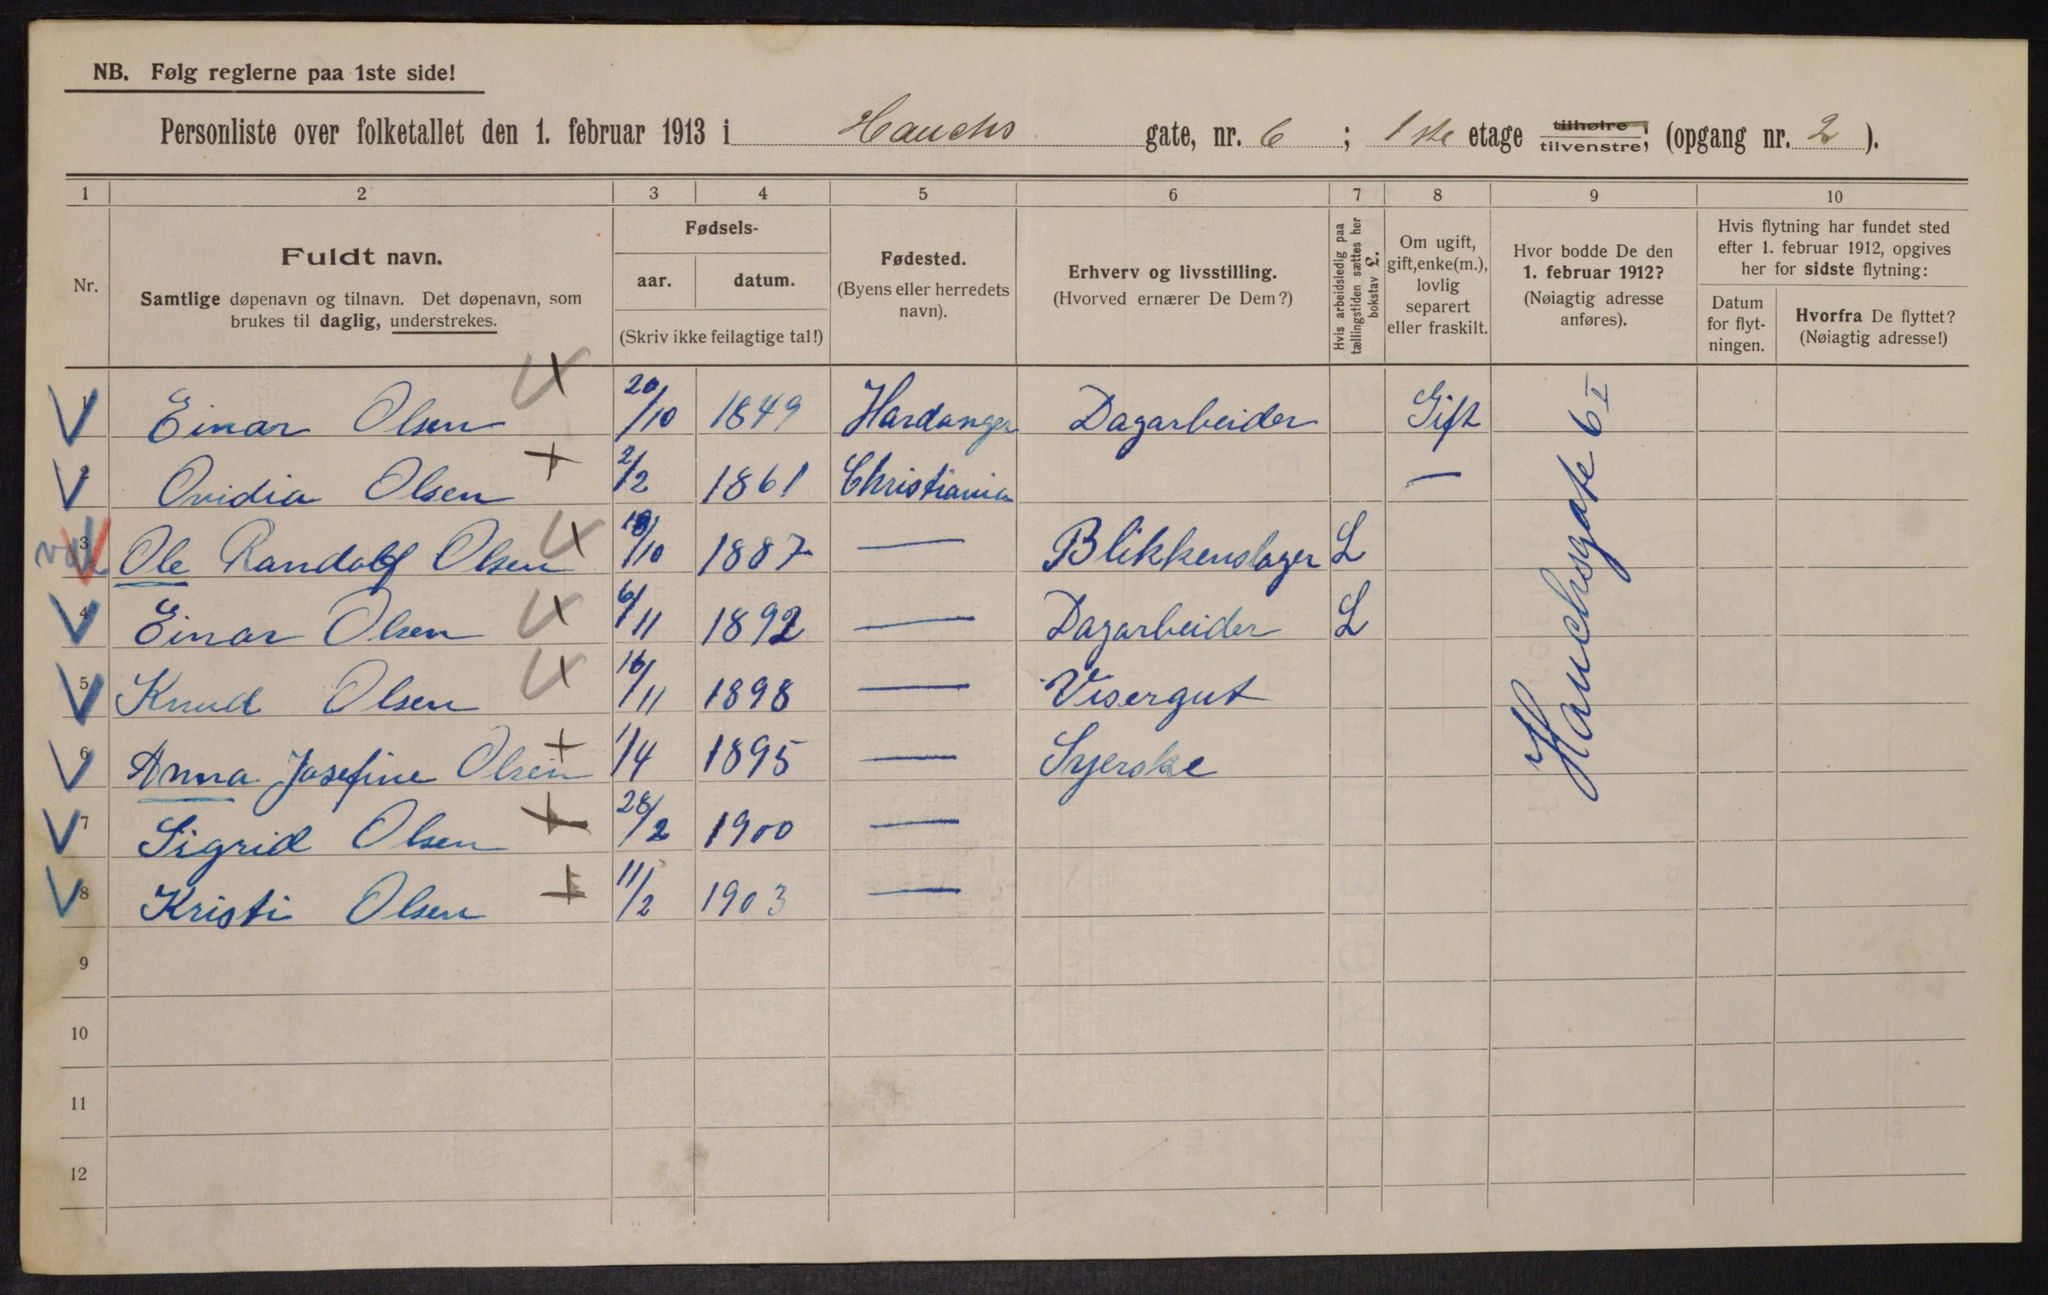 NB. Følg reglerne paa 1ste side!
Personliste over folketallet den 1. februar 1913 i Hauchs gate, nr. 6 ; 1ste etage tilhøire, tilvenstre, (opgang nr. 2 ).
1 2 3 4 5 6 7 8 9 10
Nr.
Fuldt navn.
Samtlige døpenavn og tilnavn. Det døpenavn, som
brukes til daglig, understrekes.
Fødsels-
aar. datum.
(Skriv ikke feilagtige tal!)
Fødested.
(Byens eller herredets
navn).
Erhverv og livsstilling.
(Hvorved ernærer De Dem?)
Hvis arbeidsledig paa
tællingstiden sættes her
bokstav L.
Om ugift,
gift, enke(m.),
lovlig
separert
eller fraskilt.
Hvor bodde De den
1. februar 1912?
(Nøiagtig adresse
anføres).
Hvis flytning har fundet sted
efter 1. februar 1912, opgives
her for sidste flytning:
Datum
for flyt-
ningen.
Hvorfra De flyttet?
(Nøiagtig adresse!)
1 Einar Olsen 20/10 1849 Hardanger Dagarbeider Gift
2 Ovidia Olsen 2/2 1861 Christiania —
3 Ole Randolf Olsen /10 1887 — Blikkenslager L
4 Einar Olsen 6/11 1892 — Dagarbeider L
5 Knud Olsen 16/11 1898 — Visergut
6 Anna Josefine Olsen 1/4 1895 — Syerske
7 Sigrid Olsen 28/2 1900 —
8 Kristi Olsen 11/2 1903 —
Hauchsgate 6 I
9
10
11
12